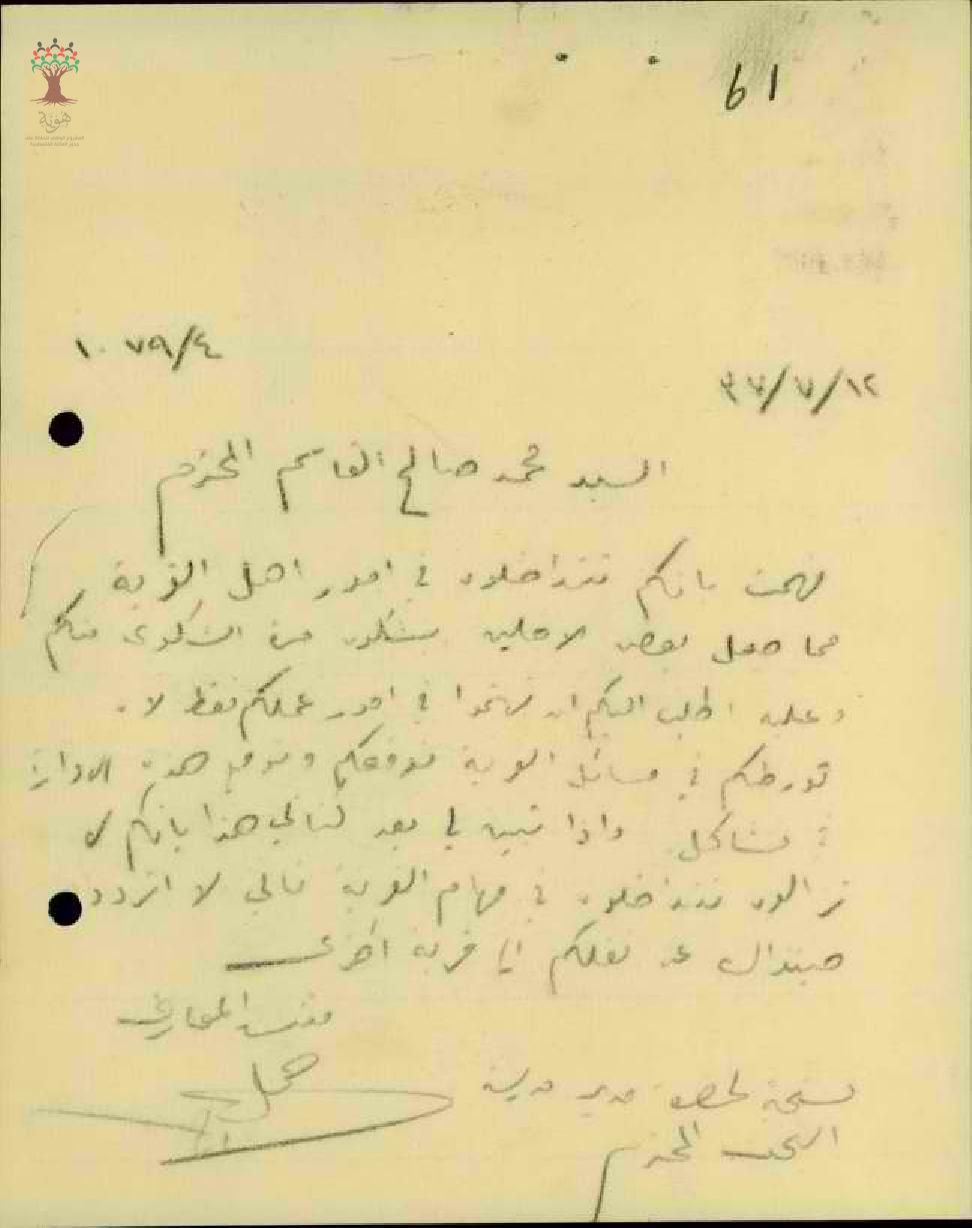 61
هوية
١٠٧٩/٤
٣٧/٧/١٢
السيد محمد صالح القاسم المحترم
فهمت بانكم تتداخلون في امور اهل القرية
مما جعل بعض الاهلين يشكون مرة الشكوى منكم
وعليه اطلب اليكم ان تهتموا في امور عملكم فقط لا
تورطكم في مسائل القرية فتوقعكم وتوقع هذه الادارة
في مشاكل واذا تبين لي بعد كتابي هذا بانكم لا
زالون تتداخلون في مهام القرية فاني لا اتردد
حينذاك عن نقلكم الى قرية اخرى
مفتش المعارف
نسخة لحضرة مدير مدرسة
المحترم